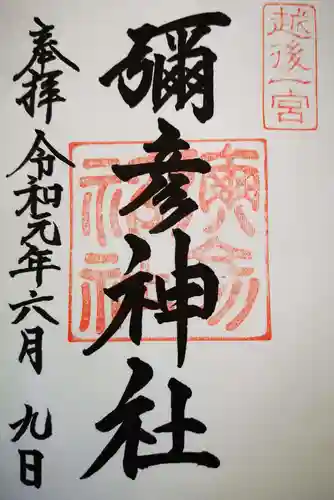 越後一宮
彌彦神社
奉拝
令和元年六月九日